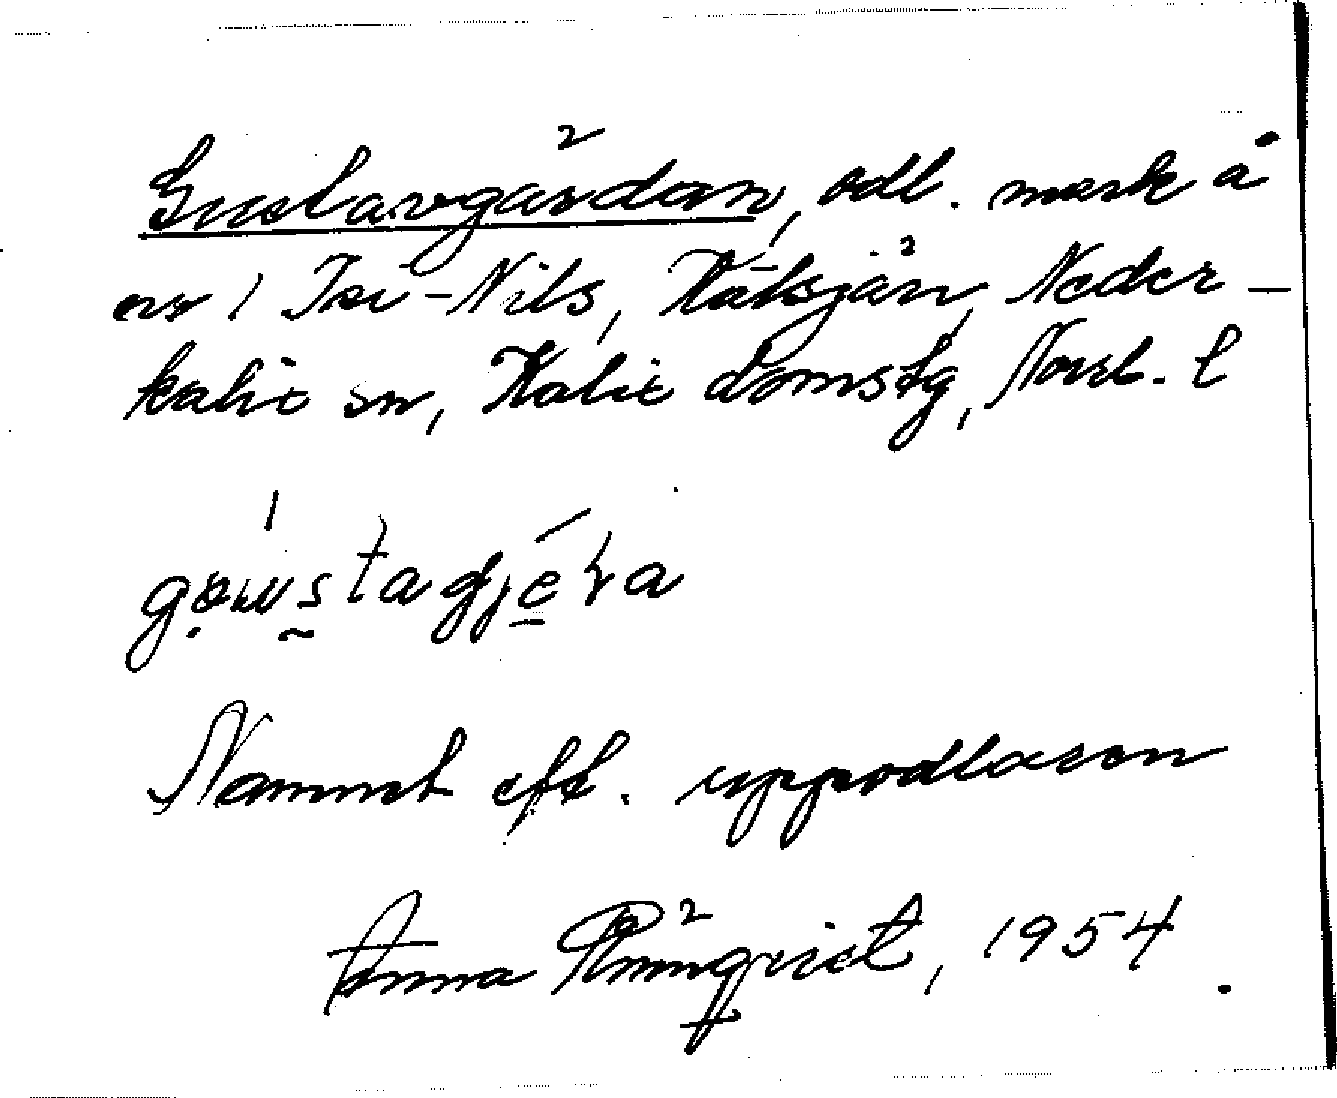 Gustavgårdan, odl. mark å
en 1 Isi-Nils, Hålsjön, Neder-
kalix sn, Kalix domsåg, Norrb. l
gowstagjéra
Namnet eft. uppodlaren
Anna Rönnqvist, 1954.